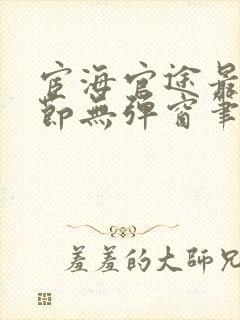 宦海官途最
節無彈窗筆
羞羞的大師兄